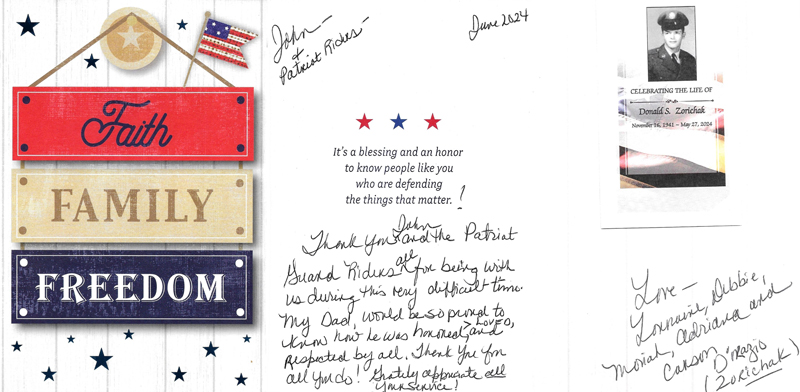 Faith
FAMILY
FREEDOM
John -
+
Patriot Riders -
June 2024
It's a blessing and an honor
to know people like you
who are defending
the things that matter. !
Thank You John and the Patriot
Guard Riders all for being with
us during this very difficult time.
My Dad, would be so proud to
know how he was honored, LOVED, and
respected by all. Thank You for
all you do! Greatly appreciate all
your service!
CELEBRATING THE LIFE OF
Donald S. Zorichak
November 16, 1941 ~ May 27, 2024
Love -
Lorraine, Debbie,
Moriah, Adriana and
Carson D'Orazio
(Zorichak)